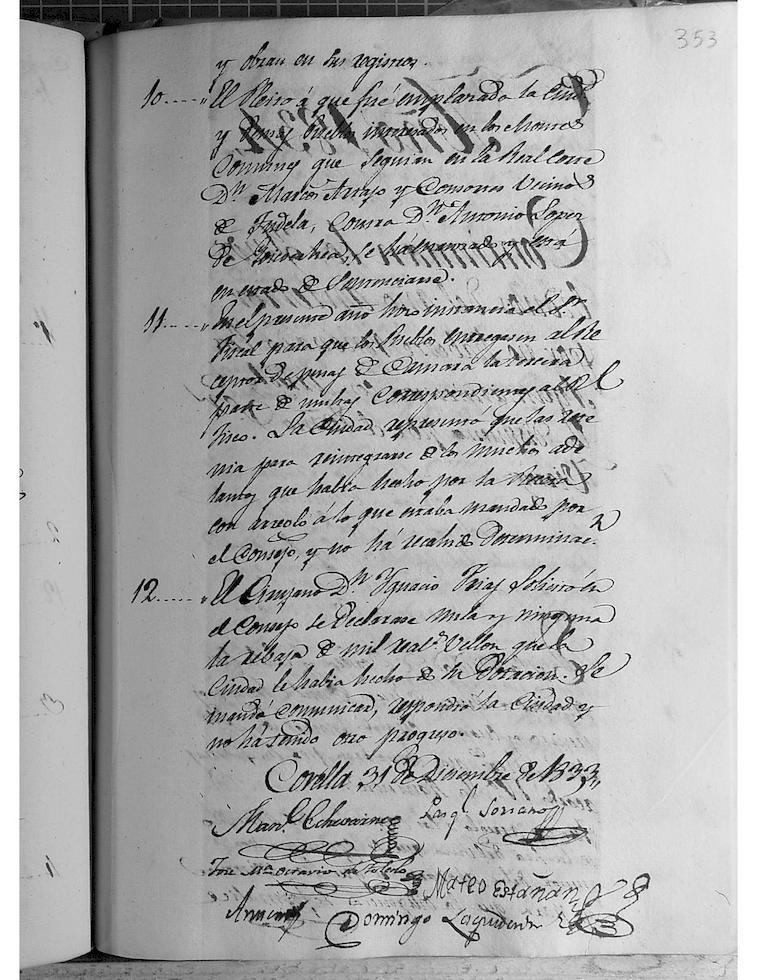 353
y obran en sus registros.
10..... El Pleito á que fué emplazada la Ciud.
y demas Pueblos interesados en los Montes
Comunes que seguian en la Real Corte
Dn. Marcos Arrayo y Consortes Vecinos
de Tudela, Contra Dn. Antonio Lopez
de Goicoechea, se há y está
en estado de Sentenciarse.
11..... En el presente año hizo instancia el Sr.
Fiscal para que los Pueblos entregasen al Re
ceptor de penas de Camara la tercera
parte de multas Correspondientes al Rl
Fisco. La Ciudad representó que las rete
nia para reintegrarse de los muchos ade
lantos que habia hecho por la
con arreglo á lo que estaba mandado por
el Consejo, y no há recahido Determinacn.
12..... El Cirujano Dn. Ygnacio Frias solicitó en
el Consejo se declarase nula y ninguna
la rebaja de mil reals. Vellon que la
Ciudad le habia hecho de su Dotacion. Se
mandó comunicar, respondió la Ciudad y
no há tenido otro progreso.
Corella 31 de Diciembre de 1833,,
Manl. Echevarria Pasql. Soriano
José Ma. Octavio de Toledo
Mateo Estañan
Domingo